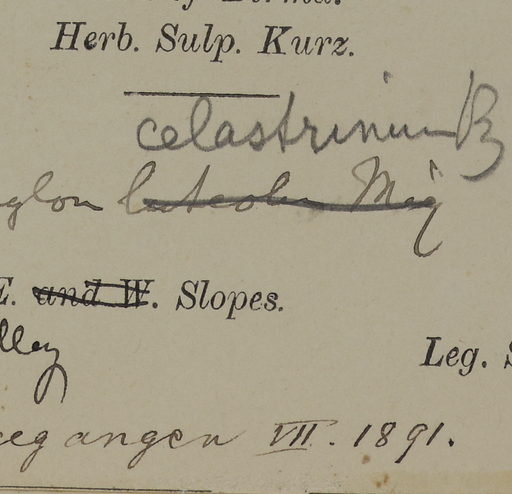 Herb. Sulp. Kurz.
celastrinum
glon luteolum Miq
E. and W. Slopes.
lley
Leg. S
egangen VII. 1891.